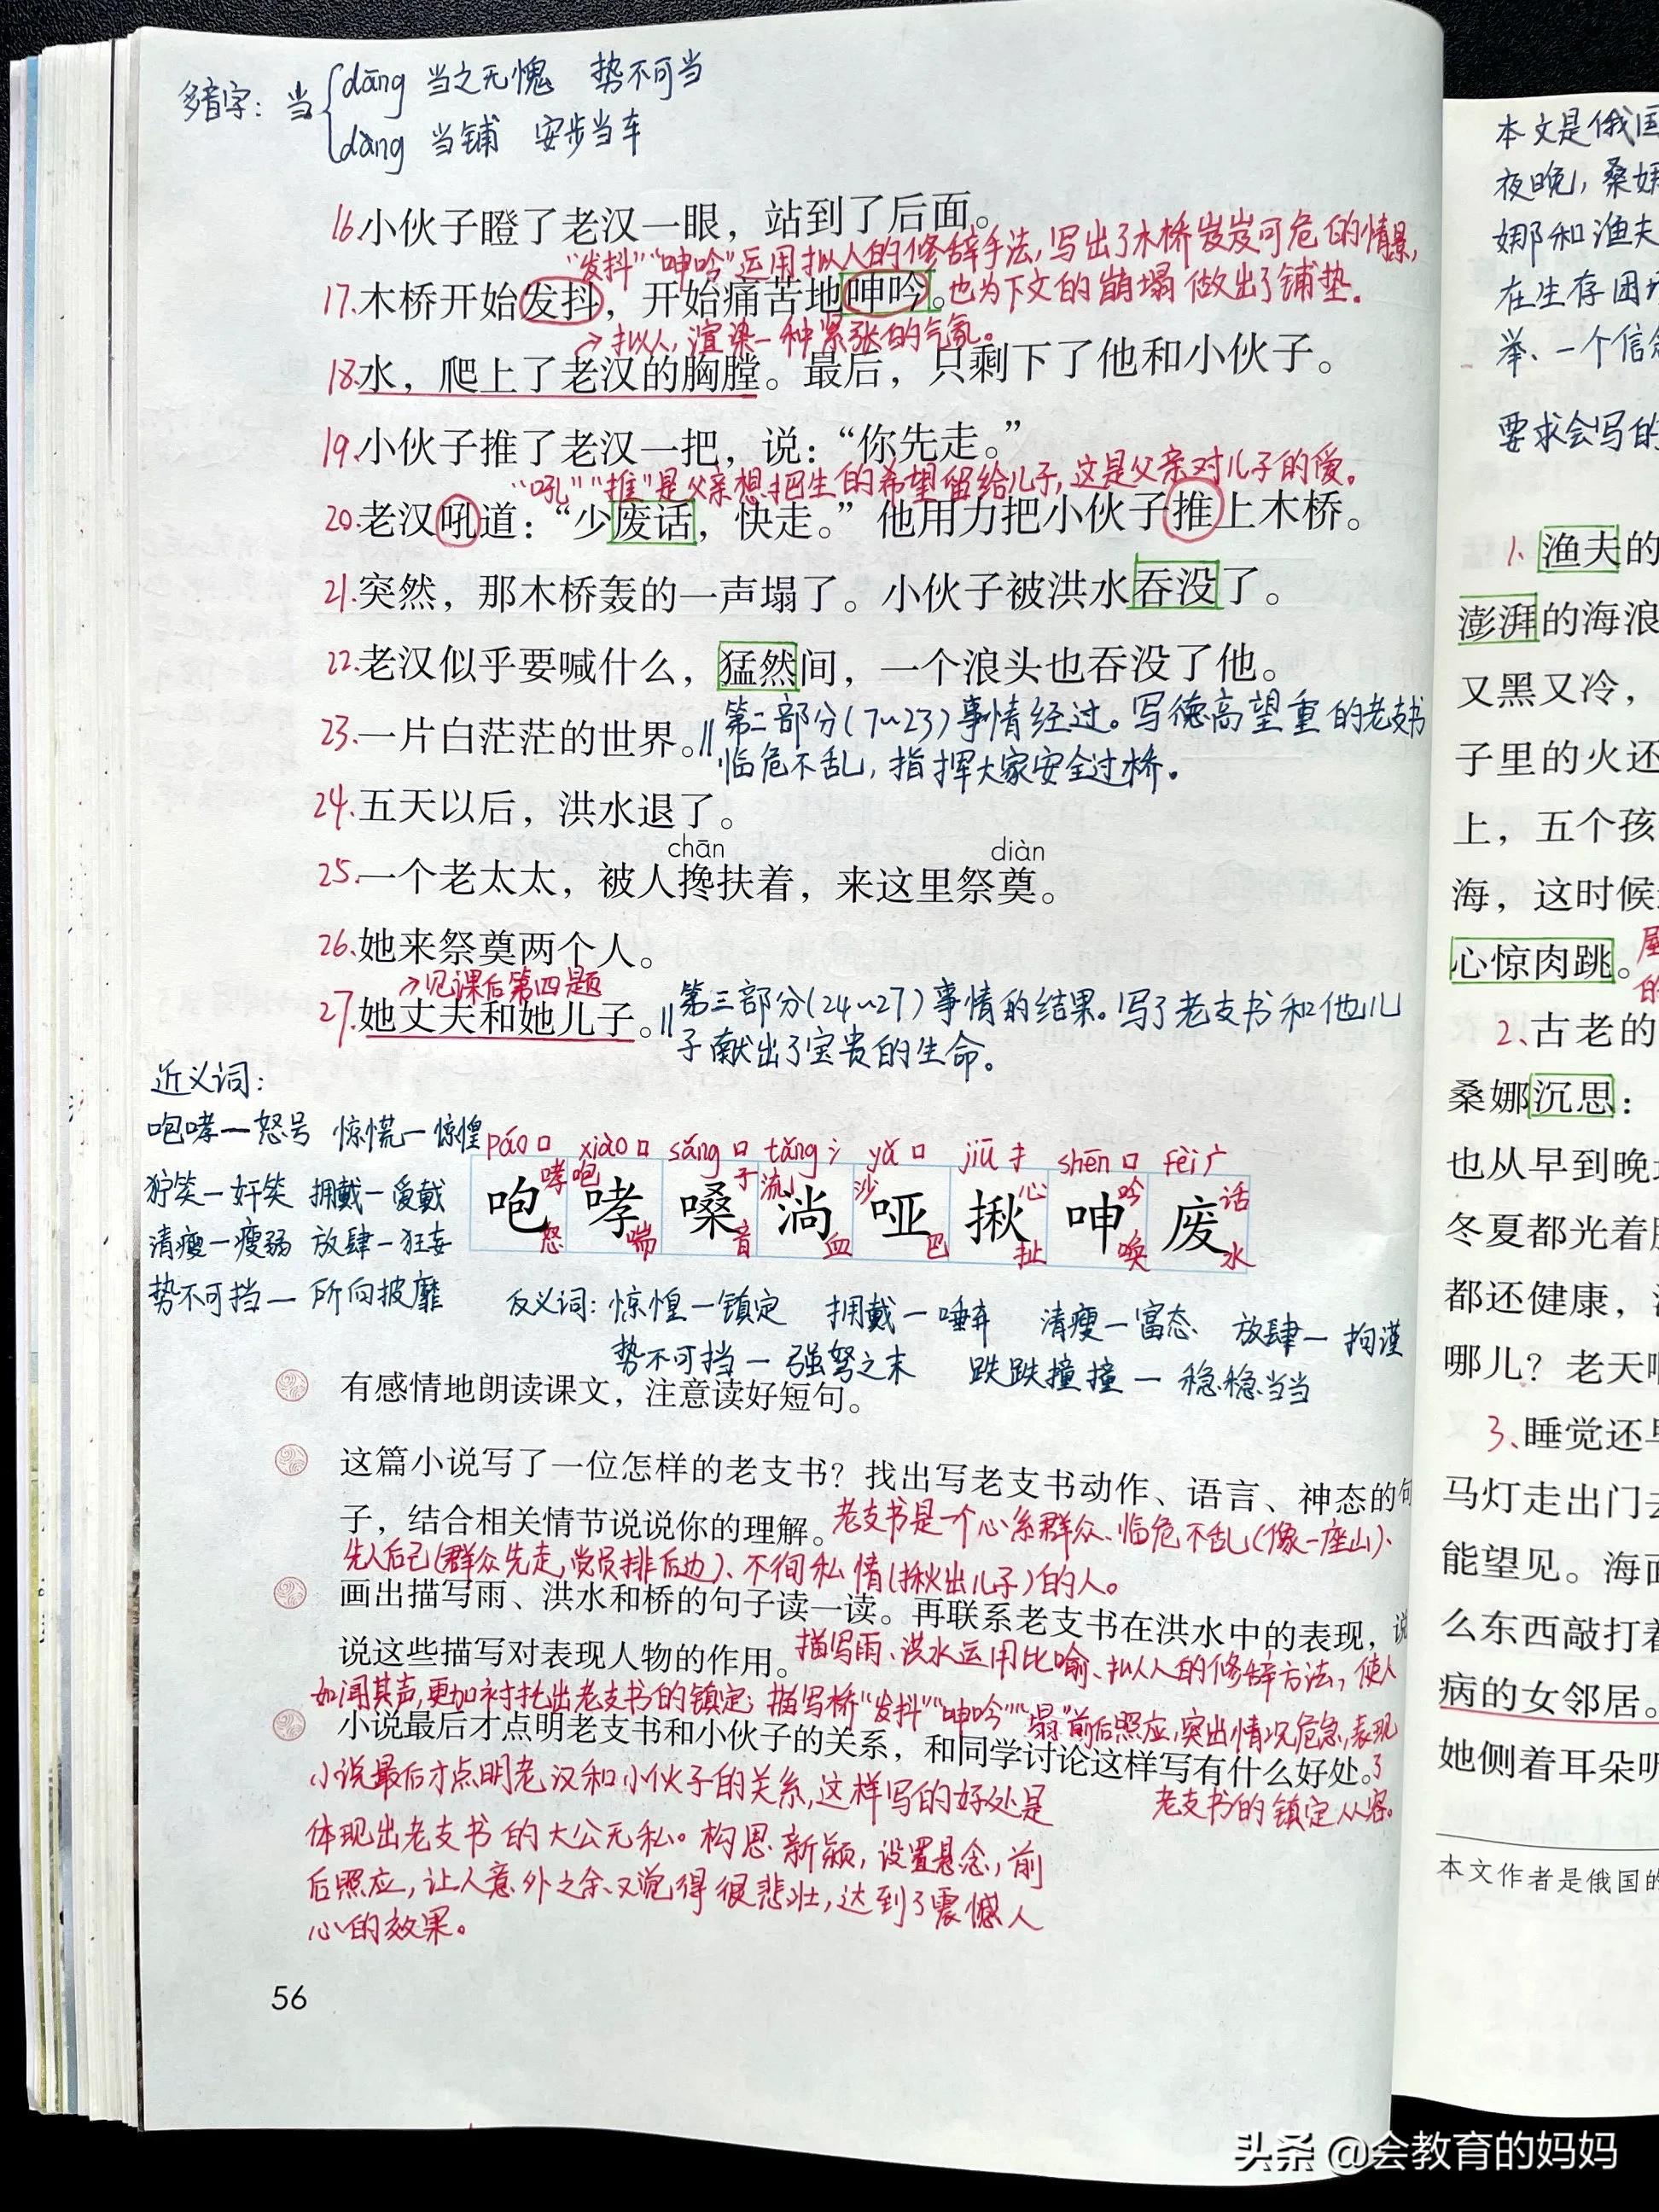 多音字：当
dāng 当之无愧 势不可当
dàng 当铺 安步当车
16.小伙子瞪了老汉一眼，站到了后面。
“发抖”“呻吟”运用拟人的修辞手法，写出了木桥岌岌可危的情景，
17.木桥开始发抖，开始痛苦地呻吟。也为下文的崩塌做出了铺垫。
→拟人，渲染一种紧张的气氛。
18.水，爬上了老汉的胸膛。最后，只剩下了他和小伙子。
19.小伙子推了老汉一把，说：“你先走。”
“吼”“推”是父亲想把生的希望留给儿子，这是父亲对儿子的爱。
20.老汉吼道：“少废话，快走。”他用力把小伙子推上木桥。
21.突然，那木桥轰的一声塌了。小伙子被洪水吞没了。
22.老汉似乎要喊什么，猛然间，一个浪头也吞没了他。
23.一片白茫茫的世界。‖第二部分（7~23）事情经过。写德高望重的老支书
临危不乱，指挥大家安全过桥。
24.五天以后，洪水退了。
chān diàn
25.一个老太太，被人搀扶着，来这里祭奠。
26.她来祭奠两个人。
→见课后第四题
27.她丈夫和她儿子。‖第三部分（24~27）事情的结果。写了老支书和他儿
子献出了宝贵的生命。
近义词：
咆哮—怒号 惊慌—惊惶
狞笑—奸笑 拥戴—爱戴
清瘦—瘦弱 放肆—狂妄
势不可挡—所向披靡
páo口 xiào口 sǎng口 tǎng氵 yǎ口 jiū扌 shēn口 fèi广
哮 咆 子 流 沙 心 吟 话
咆 哮 嗓 淌 哑 揪 呻 废
怒 喘 音 血 巴 扯 唤 水
反义词：惊惶—镇定 拥戴—唾弃 清瘦—富态 放肆—拘谨
势不可挡—强弩之末 跌跌撞撞—稳稳当当
有感情地朗读课文，注意读好短句。
这篇小说写了一位怎样的老支书？找出写老支书动作、语言、神态的句
子，结合相关情节说说你的理解。老支书是一个心系群众、临危不乱（像一座山）、
先人后己（群众先走，党员排后边）、不徇私情（揪出儿子）的人。
画出描写雨、洪水和桥的句子读一读。再联系老支书在洪水中的表现，说
说这些描写对表现人物的作用。描写雨、洪水运用比喻、拟人的修辞方法，使人
如闻其声，更加衬托出老支书的镇定；描写桥“发抖”“呻吟”“塌”前后照应，突出情况危急，表现
小说最后才点明老支书和小伙子的关系，和同学讨论这样写有什么好处。了
老支书的镇定从容。
小说最后才点明老汉和小伙子的关系，这样写的好处是
体现出老支书的大公无私。构思新颖，设置悬念，前
后照应，让人意外之余又觉得很悲壮，达到了震撼人
心的效果。
56
本文是俄国
夜晚，桑娜
娜和渔夫
在生存困
举、一个信
要求会写的
1、渔夫的
澎湃的海浪
又黑又冷，
子里的火还
上，五个孩
海，这时候
心惊肉跳。
的
2、古老的
桑娜沉思：
也从早到晚
冬夏都光着
都还健康，
哪儿？老天
3、睡觉还早
马灯走出门去
能望见。海面
么东西敲打着
病的女邻居。
她侧着耳朵听
本文作者是俄国的
头条 @会教育的妈妈